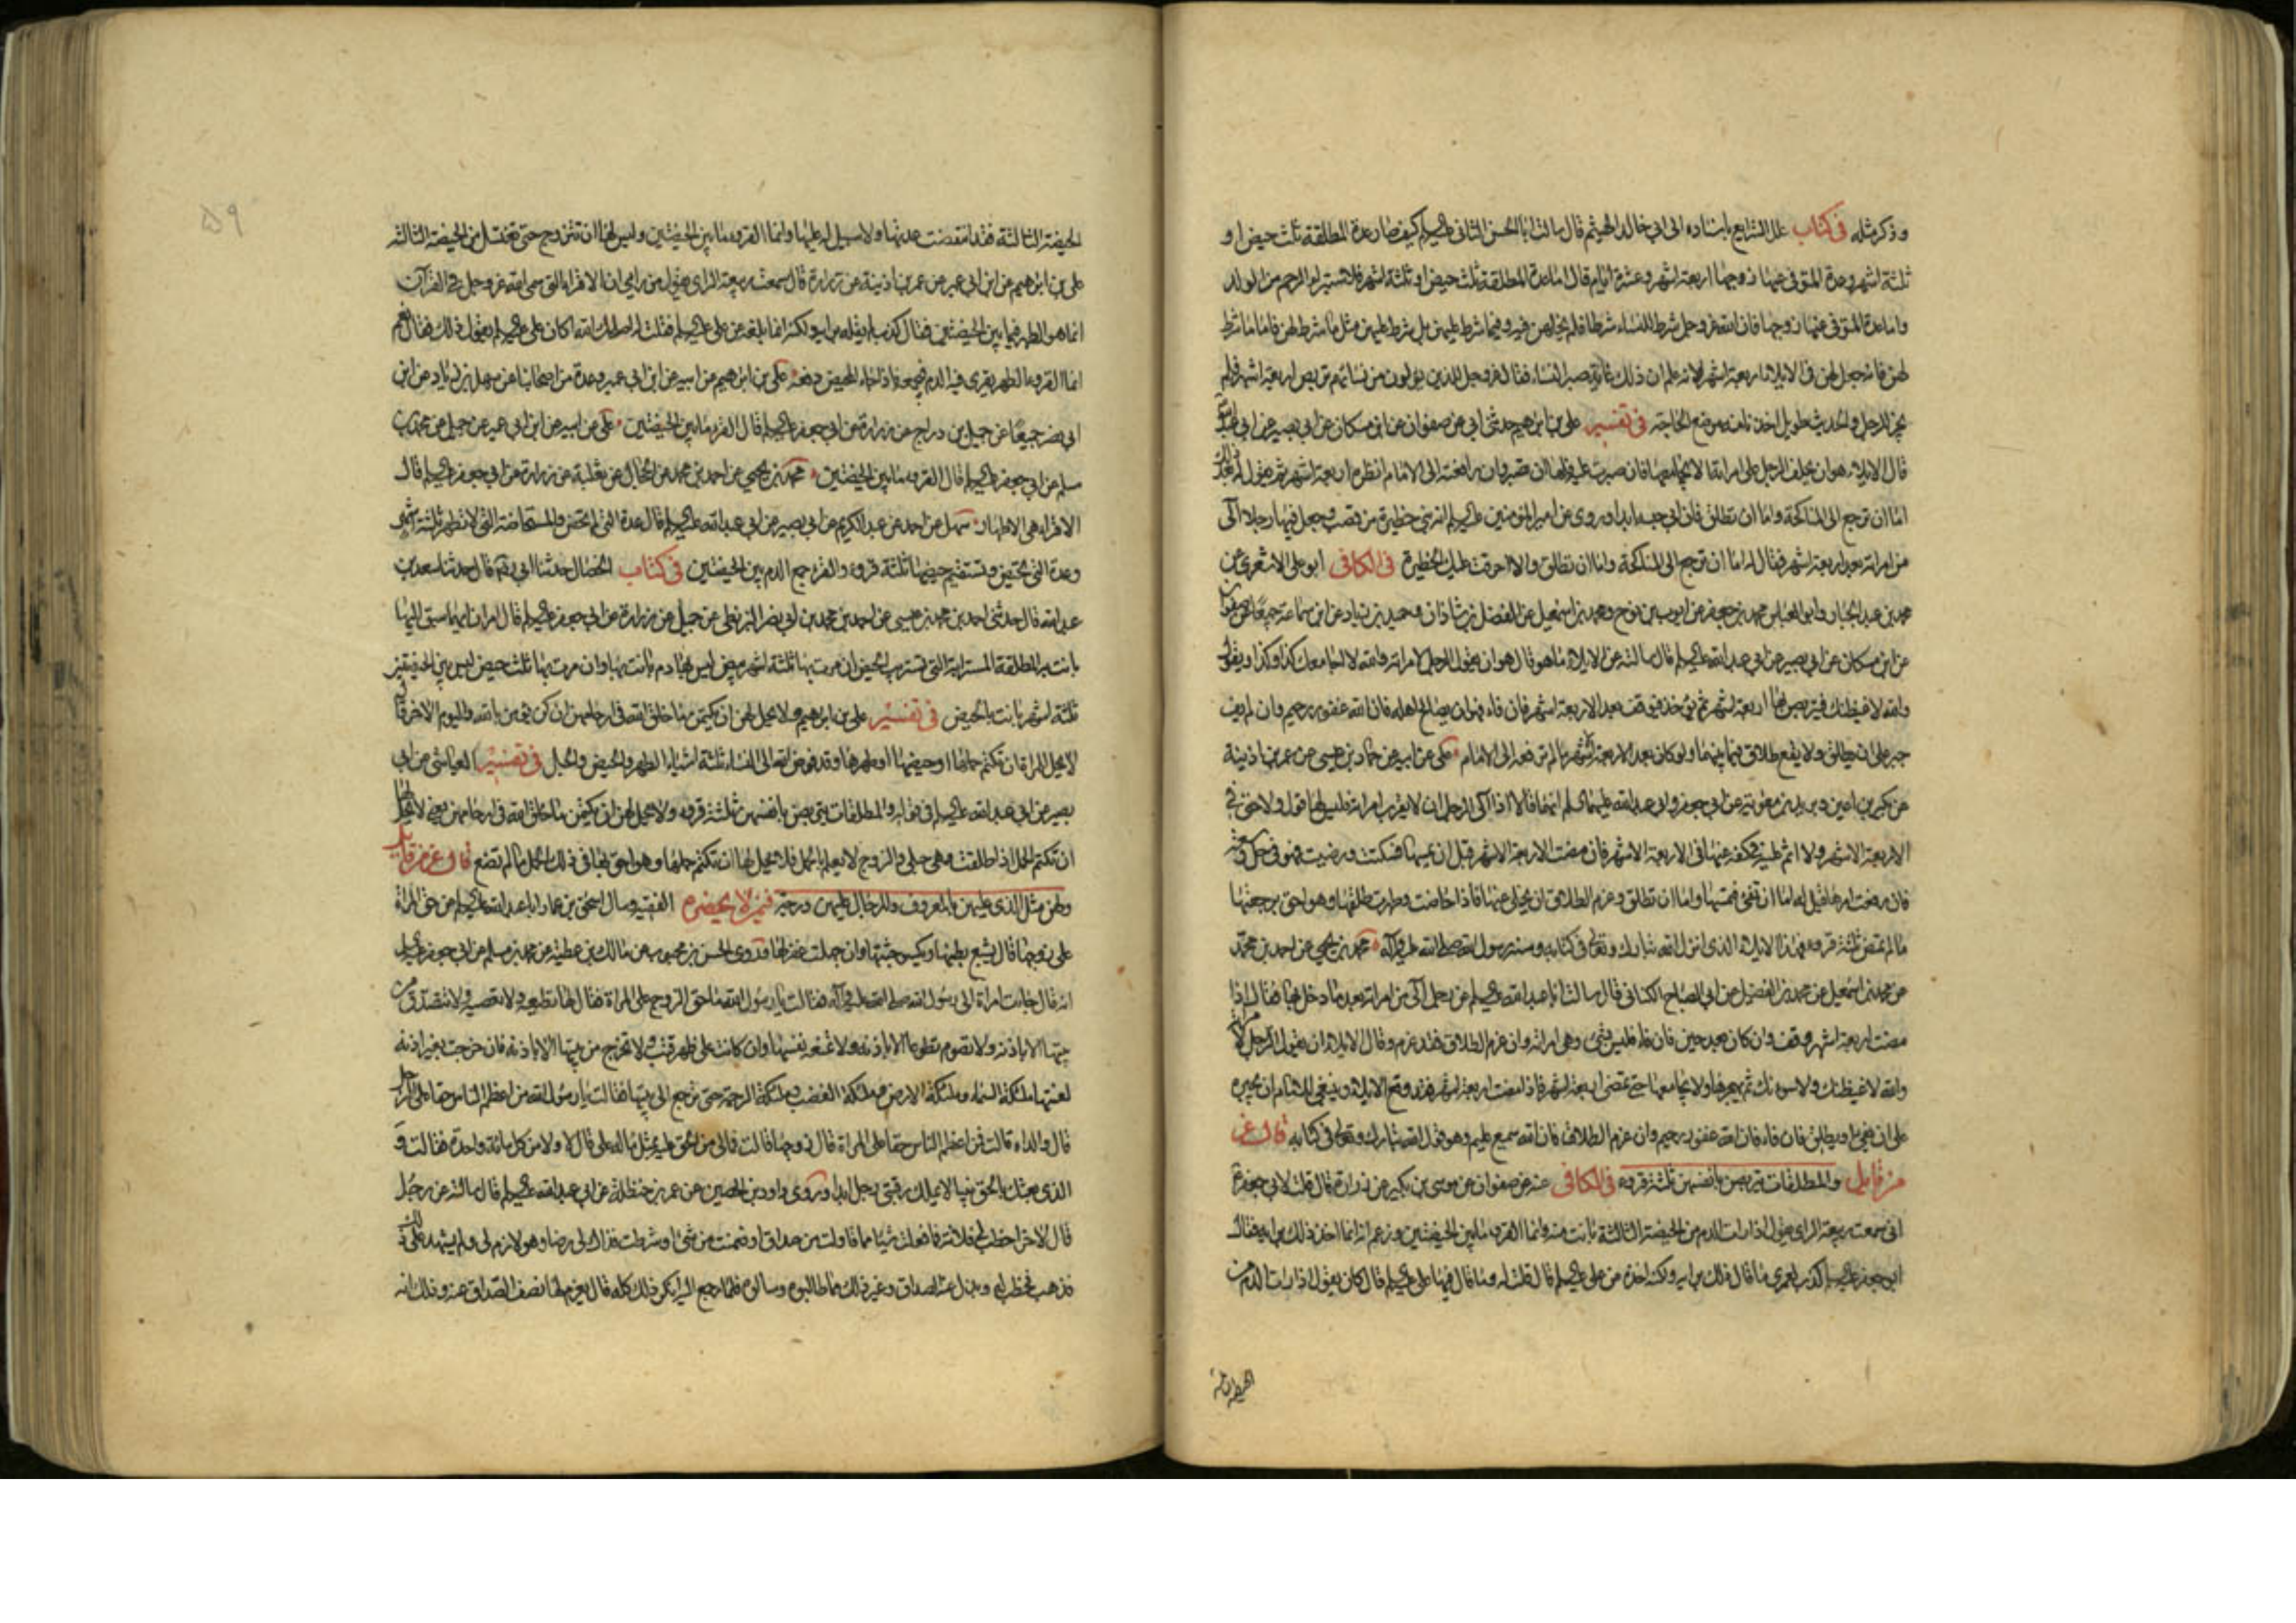 وذكر مثله في كتاب علل الشرايع باسناده الى ابي خالد الهيثم قال سالت ابا الحسن الثاني عليه السلم كيف صار عدة المطلقة ثلث حيض او
ثلثة اشهر وعدة المتوفى عنها زوجها اربعة اشهر وعشرة ايام قال اما عدة المطلقة ثلث حيض او ثلثة اشهر فلاستبراء الرحم من الولد
واما عدة المتوفى عنها زوجها فان الله عز وجل شرط للنساء شرطا فلم يحلهن فيه وفيما شرط عليهن بل شرط عليهن مثل ما شرط لهن فاما ما شرط
لهن فانه جعل لهن في الايلاء اربعة اشهر لانه علم ان ذلك غاية صبر النساء فقال عز وجل للذين يؤلون من نسائهم تربص اربعة اشهر فلم
يجز للرجل والحديث طويل اخذنا منه موضع الحاجة في تفسير علي بن ابراهيم حدثني ابي عن صفوان عن ابن مسكان عن ابي بصير عن ابي عبد الله
قال الايلاء هو ان يحلف الرجل على امراته الا يجامعها فان صبرت عليه فلها ان تصبر وان رافعته الى الامام انظره اربعة اشهر ثم يقول له بعد ذلك
اما ان ترجع الى المناكحة واما ان تطلق فان ابى حبسه ابدا وروى عن امير المؤمنين عليه السلم انه بنى حظيرة من قصب وجعل فيها رجلا آلى
من امراته بعد اربعة اشهر فقال له اما ان ترجع الى المناكحة واما ان تطلق والا احرقت عليك الحظيرة في الكافي ابو علي الاشعري عن
محمد بن عبد الجبار وابو العباس محمد بن جعفر عن ايوب بن نوح ومحمد بن اسمعيل عن الفضل بن شاذان وحميد بن زياد عن ابن سماعة جميعا عن صفوان
عن ابن مسكان عن ابي بصير عن ابي عبد الله عليه السلم قال سالته عن الايلاء ما هو قال هو ان يقول الرجل لامراته والله لا اجامعك كذا وكذا ويقول
والله لاغيظنك فيتربص بها اربعة اشهر ثم يؤخذ فيوقف بعد الاربعة اشهر فان فاء وهو ان يصالح اهله فان الله غفور رحيم وان لم يف
جبر على ان يطلق ولا يقع طلاق فيما بينهما ولو كان بعد الاربعة اشهر ما لم ترفعه الى الامام علي عن ابيه عن حماد بن عيسى عن عمر بن اذينة
عن بكير بن اعين وبريد بن معوية عن ابي جعفر وابي عبد الله عليهما السلم انهما قالا اذا آلى الرجل ان لا يقرب امراته فليس لها قول ولا حق في
الاربعة الاشهر ولا اثم عليه في كفه عنها في الاربعة الاشهر فان مضت الاربعة الاشهر قبل ان يمسها فسكتت ورضيت فهو في حل وسعة
فان رفعت امرها قيل له اما ان تفئ فتمسها واما ان تطلق وعزم الطلاق ان يخلي عنها فاذا حاضت وطهرت طلقها وهو احق برجعتها
ما لم تمض ثلثة قروء فهذا الايلاء الذي انزل الله تبارك وتعالى في كتابه وسنة رسول الله صلى الله عليه وآله محمد بن يحيى عن احمد بن محمد
عن محمد بن اسمعيل عن محمد بن الفضيل عن ابي الصباح الكناني قال سالت ابا عبد الله عليه السلم عن رجل آلى من امراته بعد ما دخل بها فقال اذا
مضت اربعة اشهر وقف وان كان بعد حين فان فاء فليس بشئ وهي امراته وان عزم الطلاق فقد عزم وقال الايلاء ان يقول الرجل لامراته
والله لاغيظنك ولاسوءنك ثم يهجرها ولا يجامعها حتى تمضي اربعة اشهر فاذا مضت اربعة اشهر فقد وقع الايلاء وينبغي للامام ان يجبره
على ان يفئ او يطلق فان فاء فان الله غفور رحيم وان عزم الطلاق فان الله سميع عليم وهو قول الله تبارك وتعالى في كتابه قال عز
من قايل والمطلقات يتربصن بانفسهن ثلثة قروء في الكافي عنه عن صفوان عن موسى بن بكير عن زرارة قال قلت لابي جعفر
اني سمعت ربيعة الراى يقول اذا رات الدم من الحيضة الثالثة بانت منه وانما القرء ما بين الحيضتين وزعم انه انما اخذ ذلك برايه فقال
ابو جعفر عليه السلم كذب لعمري ما قال ذلك برايه ولكنه اخذه عن علي عليه السلم قال قلت له وما قال فيها علي عليه السلم قال كان يقول اذا رات الدم من
الحيضة الثالثة فقد انقضت عدتها ولا سبيل له عليها وانما القرء ما بين الحيضتين وليس لها ان تتزوج حتى تغتسل من الحيضة الثالثة
علي بن ابراهيم عن ابن ابي عمير عن عمر بن اذينة عن زرارة قال سمعت ربيعة الراى يقول من رايي ان الاقراء التي سمى الله عز وجل في القرآن
انما هو الطهر فيما بين الحيضتين فقال كذب لم يقله برايه ولكنه انما بلغه عن علي عليه السلم فقلت له اصلحك الله اكان علي عليه السلم يقول ذلك فقال نعم
انما القرء الطهر يقرى فيه الدم فيجمعه فاذا جاء المحيض دفعه علي بن ابراهيم عن ابيه عن ابن ابي عمير وعدة من اصحابنا عن سهل بن زياد عن ابن
ابي نصر جميعا عن جميل بن دراج عن زرارة عن ابي جعفر عليه السلم قال القرء ما بين الحيضتين علي عن ابيه عن ابن ابي عمير عن جميل عن محمد بن
مسلم عن ابي جعفر عليه السلم قال القرء ما بين الحيضتين محمد بن يحيى عن احمد بن محمد عن الحجال عن ثعلبة عن زرارة عن ابي جعفر عليه السلم قال
الاقراء هي الاطهار سهل عن احمد عن عبد الكريم عن ابي بصير عن ابي عبد الله عليه السلم قال عدة التي لم تحض والمستحاضة التي لا تطهر ثلثة اشهر
وعدة التي تحيض ويستقيم حيضها ثلثة قروء والقرء جمع الدم بين الحيضتين في كتاب الخصال حدثنا ابي قال حدثنا سعد بن
عبد الله قال حدثني احمد بن محمد بن عيسى عن احمد بن محمد بن ابي نصر البزنطي عن جميل عن زرارة عن ابي جعفر عليه السلم قال امران ايهما سبق اليها
بانت به المطلقة المسترابة التي تستريب الحيض ان مرت بها ثلثة اشهر بيض ليس بها دم بانت بها وان مرت بها ثلث حيض ليس بين الحيضتين
ثلثة اشهر بانت بالحيض في تفسير علي بن ابراهيم ولا يحل لهن ان يكتمن ما خلق الله في ارحامهن ان كن يؤمن بالله واليوم الاخر قال
لا يحل للمراة ان تكتم حملها او حيضها او طهرها وقد فوض الله الى النساء ثلثة اشياء الطهر والحيض والحبل في تفسير العياشي عن ابي
بصير عن ابي عبد الله عليه السلم في قوله والمطلقات يتربصن بانفسهن ثلثة قروء ولا يحل لهن ان يكتمن ما خلق الله في ارحامهن يعني لا يحل لها
ان تكتم الحمل اذا طلقت وهي حبلى والزوج لا يعلم بالحمل فلا يحل لها ان تكتم حملها وهو احق بها في ذلك الحمل ما لم تضع قال عز من قايل
ولهن مثل الذي عليهن بالمعروف وللرجال عليهن درجة فيمن لا يحضره الفقيه وسال اسحق بن عمار ابا عبد الله عليه السلم عن حق المراة
على زوجها قال يشبع بطنها ويكسو جثتها وان جهلت غفر لها وروى الحسن بن محبوب عن مالك بن عطية عن محمد بن مسلم عن ابي جعفر عليه السلم
انه قال جاءت امراة الى رسول الله صلى الله عليه وآله فقالت يا رسول الله ما حق الزوج على المراة فقال لها تطيعه ولا تعصيه ولا تتصدق من
بيتها الا باذنه ولا تصوم تطوعا الا باذنه ولا تمنعه نفسها وان كانت على ظهر قتب ولا تخرج من بيتها الا باذنه فان خرجت بغير اذنه
لعنتها ملئكة السماء وملئكة الارض وملئكة الغضب وملئكة الرحمة حتى ترجع الى بيتها فقالت يا رسول الله من اعظم الناس حقا على الرجل
قال والداه قالت فمن اعظم الناس حقا على المراة قال زوجها قالت فمالي من الحق عليه مثل ماله علي قال لا ولا من كل مائة واحدة فقالت و
الذي بعثك بالحق نبيا لا يملك رقبتي رجل ابدا وروى داود بن الحصين عن عمر بن حنظلة عن ابي عبد الله عليه السلم قال سالته عن رجل
قال لاخر اخطب لي فلانة فما فعلت شيئا مما قاولت من صداق او ضمنت من شئ او شرطت فذاك لي رضا وهو لازم لي ولم يشهد على ذلك
فذهب فخطب له وبذل عنه الصداق وغير ذلك مما طالبوه وسالوه فلما رجع اليه انكر ذلك كله قال يغرم لها نصف الصداق عنه وذلك انه
الحيضة الثالثة
۵۹